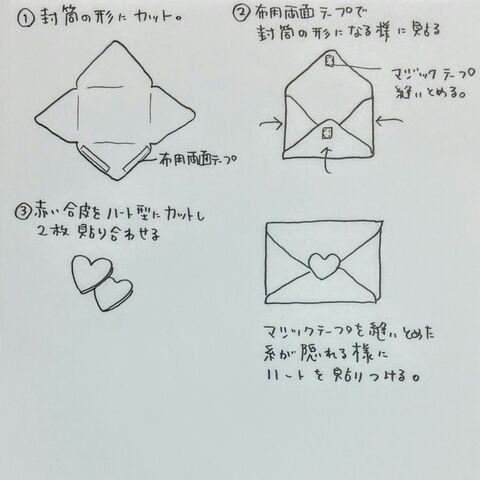 ①封筒の形にカット。
布用両面テープ
②布用両面テープで
封筒の形になる様に貼る
マジックテープ
縫いとめる。
③赤い合皮をハート型にカットし
2枚貼り合わせる
マジックテープを縫いとめた
糸が隠れる様に
ハートを貼りつける。